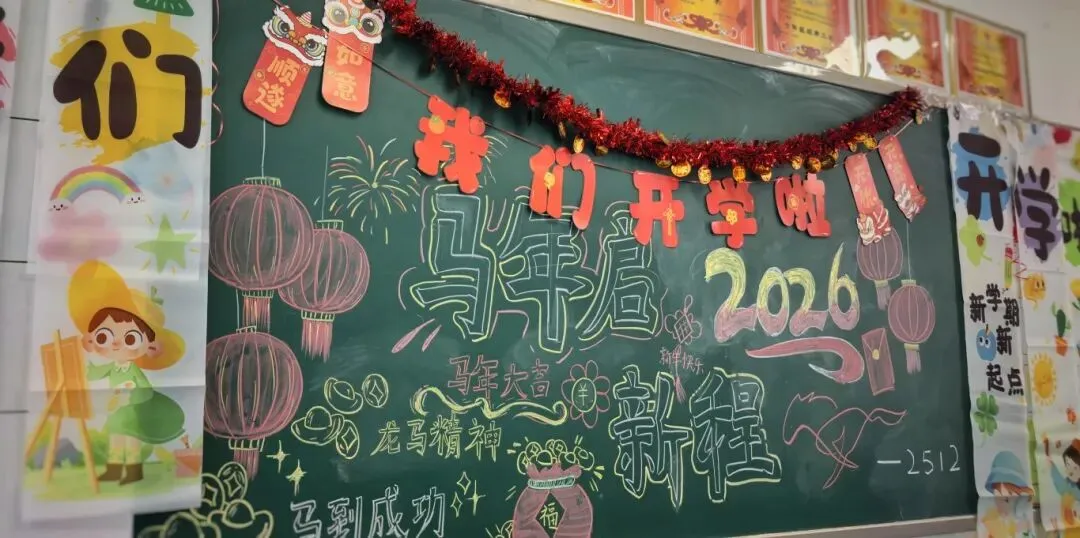 们
顺遂
如意
我们开学啦
马年启
2026
新年快乐
马年大吉
新程
龙马精神
马到成功
福
—2512
开学啦
新学期
新
起点